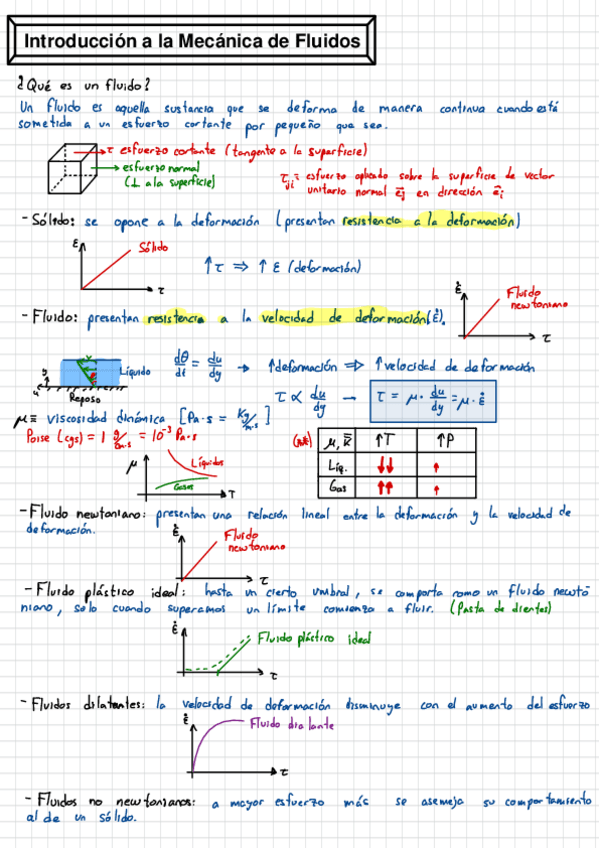 Introducción a la Mecánica de Fluidos
¿Qué es un fluido?
Un fluido es aquella sustancia que se deforma de manera continua cuando está
sometida a un esfuerzo cortante por pequeño que sea.
τ esfuerzo cortante (tangente a la superficie)
esfuerzo normal
(⊥ a la superficie)
τji = esfuerzo aplicado sobre la superficie de vector
unitario normal e⃗j en dirección e⃗i
- Sólido: se opone a la deformación (presentan resistencia a la deformación)
ε Sólido τ
↑τ ⇒ ↑ε (deformación)
- Fluido: presentan resistencia a la velocidad de deformación (ε̇).
ε̇ Fluido
newtoniano
τ
Líquido
Reposo
dθ/dt = du/dy → ↑deformación ⇒ ↑velocidad de deformación
τ ∝ du/dy → τ = μ · du/dy = μ · ε̇
μ ≡ viscosidad dinámica [Pa·s = kg/m·s]
Poise (cgs) = 1 g/cm·s = 10⁻³ Pa·s
μ Líquidos
Gases
τ
↑T ↑P
Líq. ↓↓ ↑
Gas ↑↑ ↑
- Fluido newtoniano: presentan una relación lineal entre la deformación y la velocidad de
deformación.
ε̇ Fluido
newtoniano
τ
- Fluido plástico ideal: hasta un cierto umbral, se comporta como un fluido newto-
niano, solo cuando superamos un límite comienza a fluir. (Pasta de dientes)
ε̇ Fluido plástico ideal
τ
- Fluidos dilatantes: la velocidad de deformación disminuye con el aumento del esfuerzo
ε̇ Fluido dialante
τ
- Fluidos no newtonianos: a mayor esfuerzo más se asemeja su comportamiento
al de un sólido.